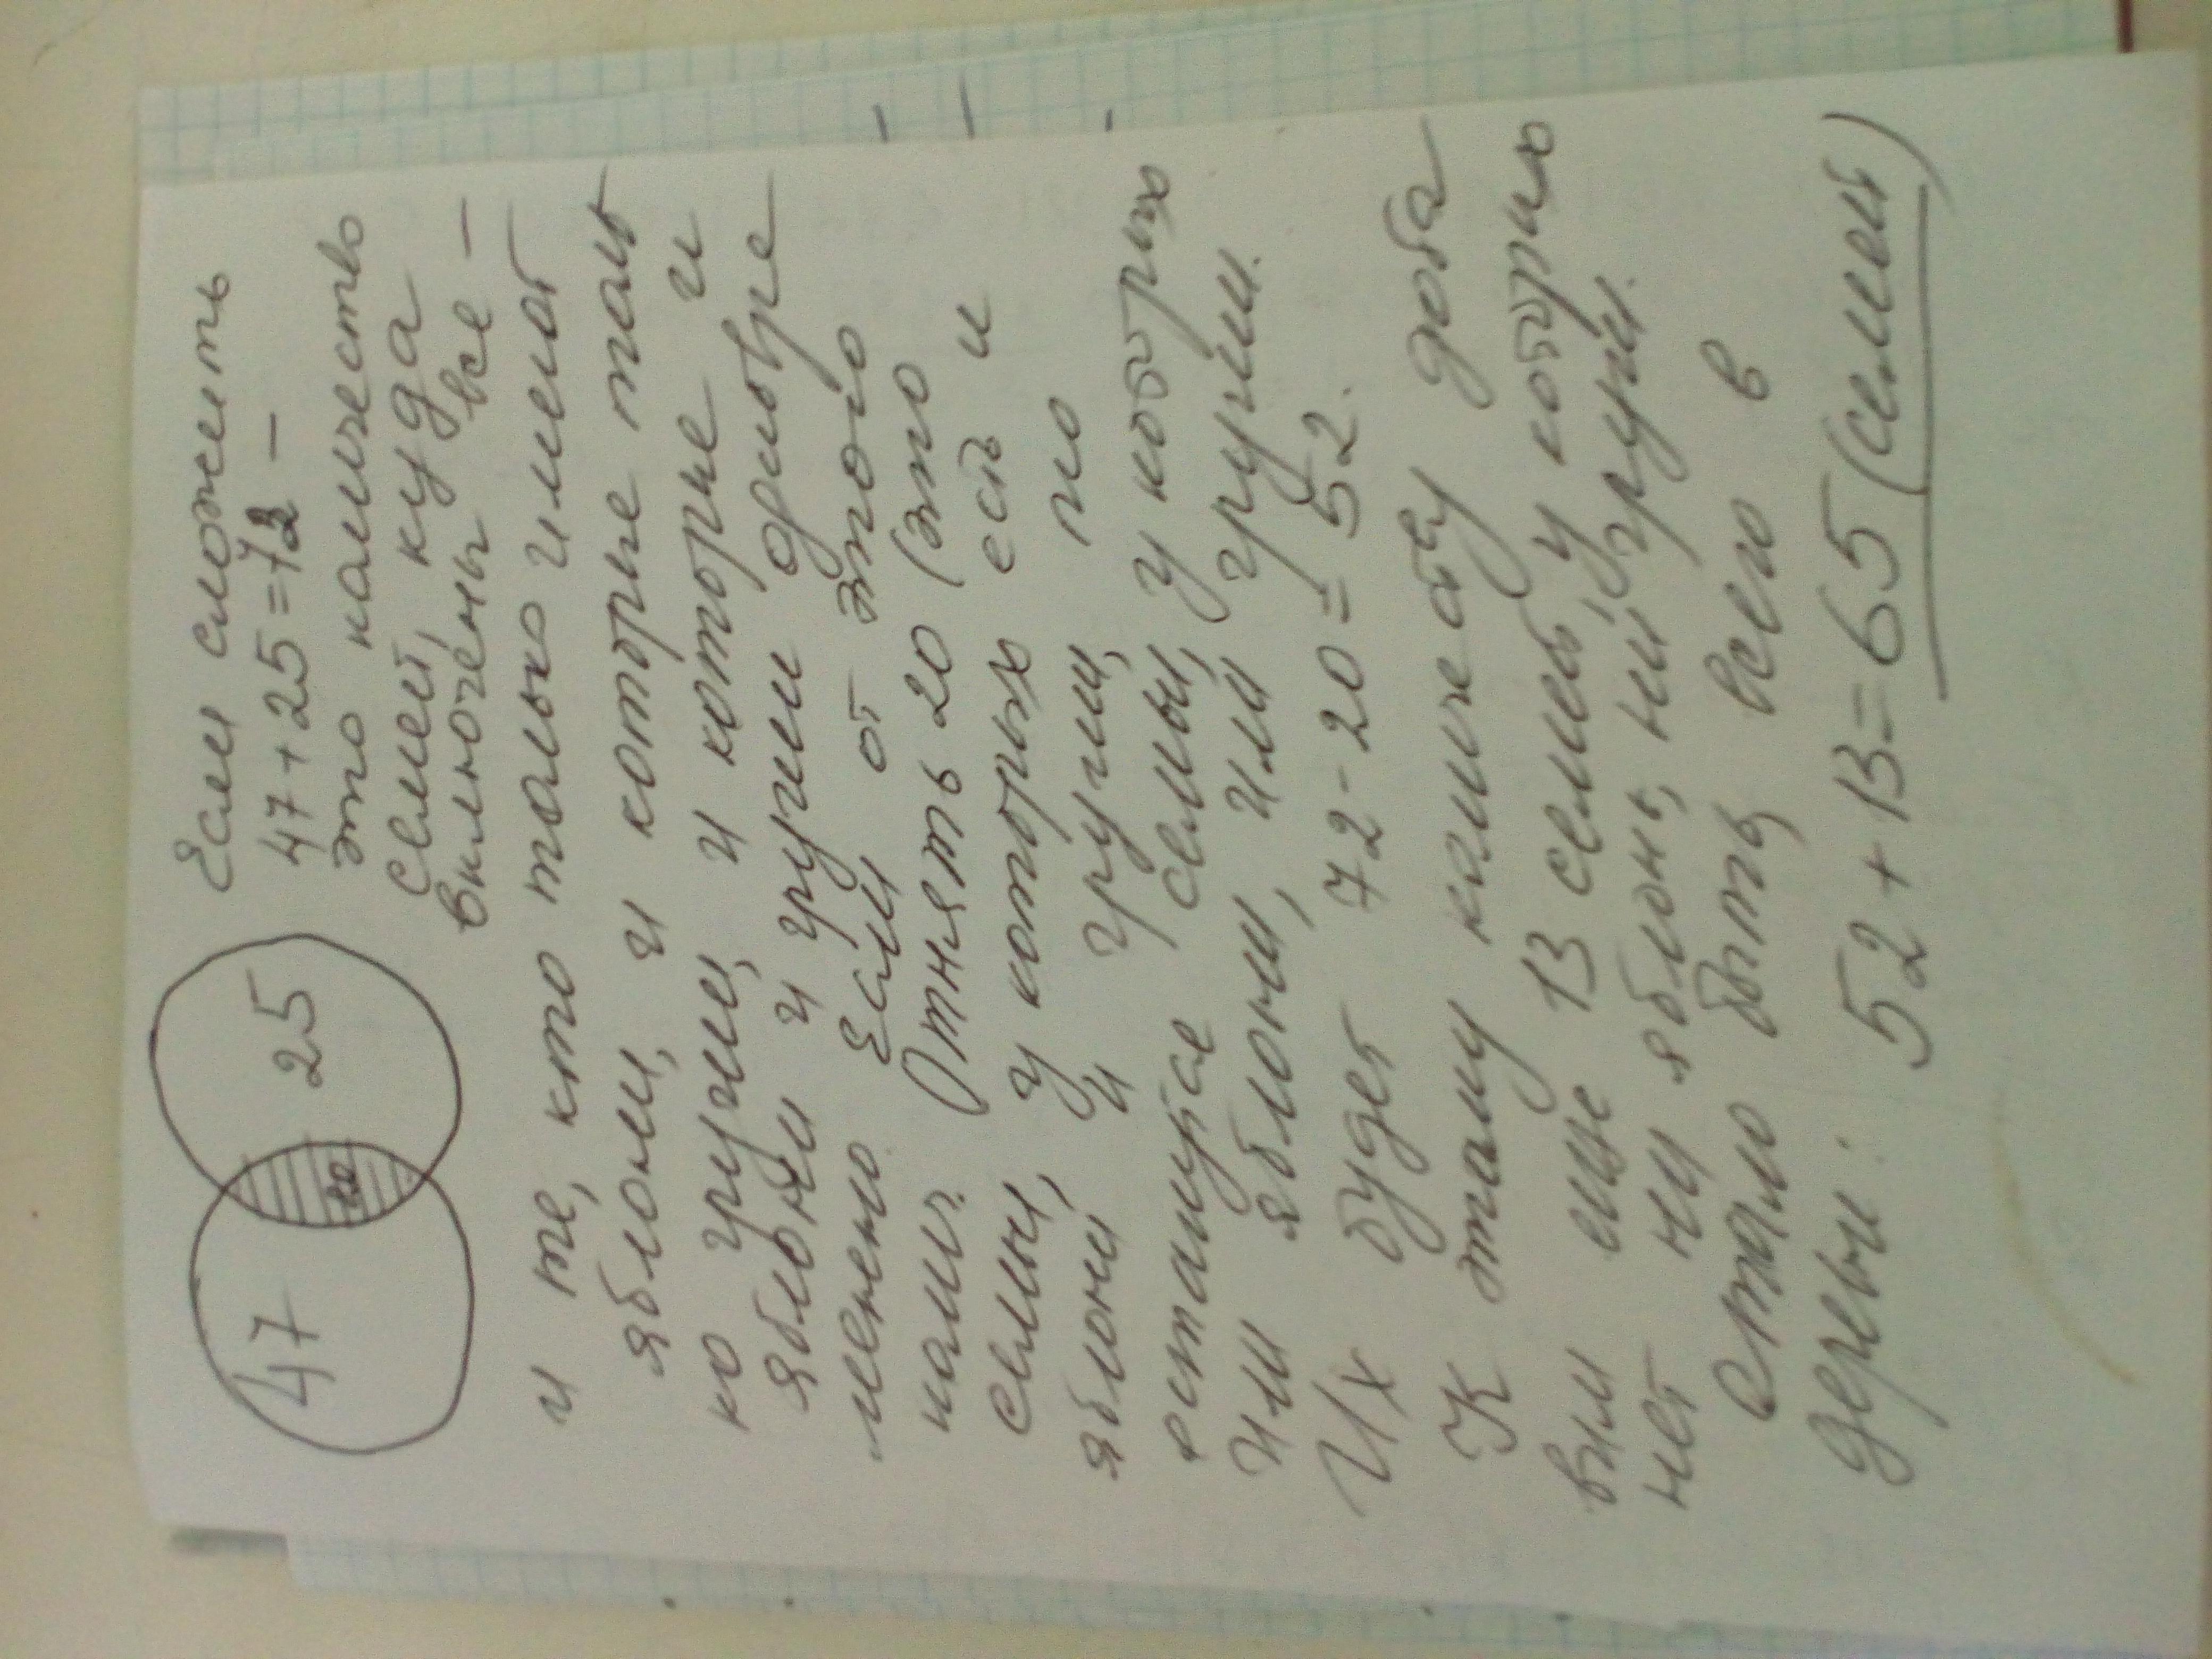 47 20 25
Если сложить
47 + 25 = 72 –
это количество
семей, куда
включены все –
и те, кто только имеет
яблони, и которые толь
ко груши, и которые и
яблони и груши одновре
менно. Если от этого
колич. отнять 20 (это
семьи, у которых есть и
яблони и груши, то
останутся семьи, у которых
или яблони, или груши.
Их будет 72 - 20 = 52.
К этому количеству доба
вим еще 13 семей, у которых
нет ни яблонь, ни груш.
Стало быть, всего в
деревне: 52 + 13 = 65 (семей)